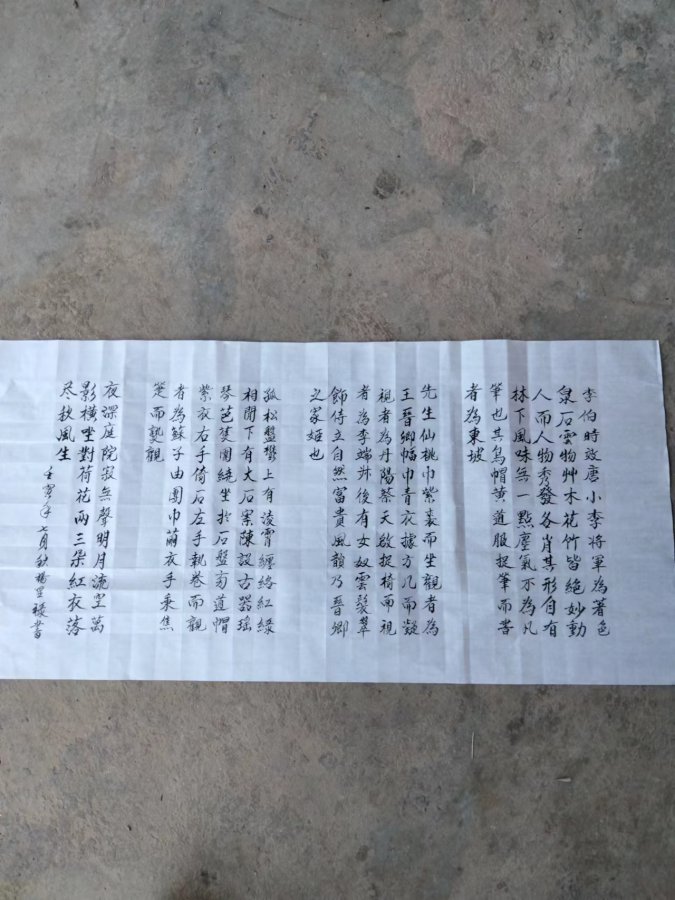 李伯時效唐小李將軍為著色
泉石雲物艸木花竹皆絕妙動
人而人物秀發各肖其形自有
林下風味無一點塵氣不為凡
筆也其烏帽黃道服捉筆而書
者為東坡
先生仙桃巾紫裘而坐觀者為
王晉卿幅巾青衣據方几而凝
視者為丹陽蔡天啟捉椅而視
者為李端叔後有女奴雲鬟翠
飾侍立自然富貴風韻乃晉卿
之家姬也
孤松盤欝上有淩霄纏絡紅綠
相閒下有大石案陳設古器瑤
琴芭蕉圍繞坐於石盤旁道帽
紫衣右手倚石左手執卷而觀
者為蘇子由團巾繭衣手秉焦
箑而𡎺觀
夜深庭院寂無聲明月流空萬
影橫坐對荷花兩三朵紅衣落
尽秋風生
壬寅年七月秋楊 書